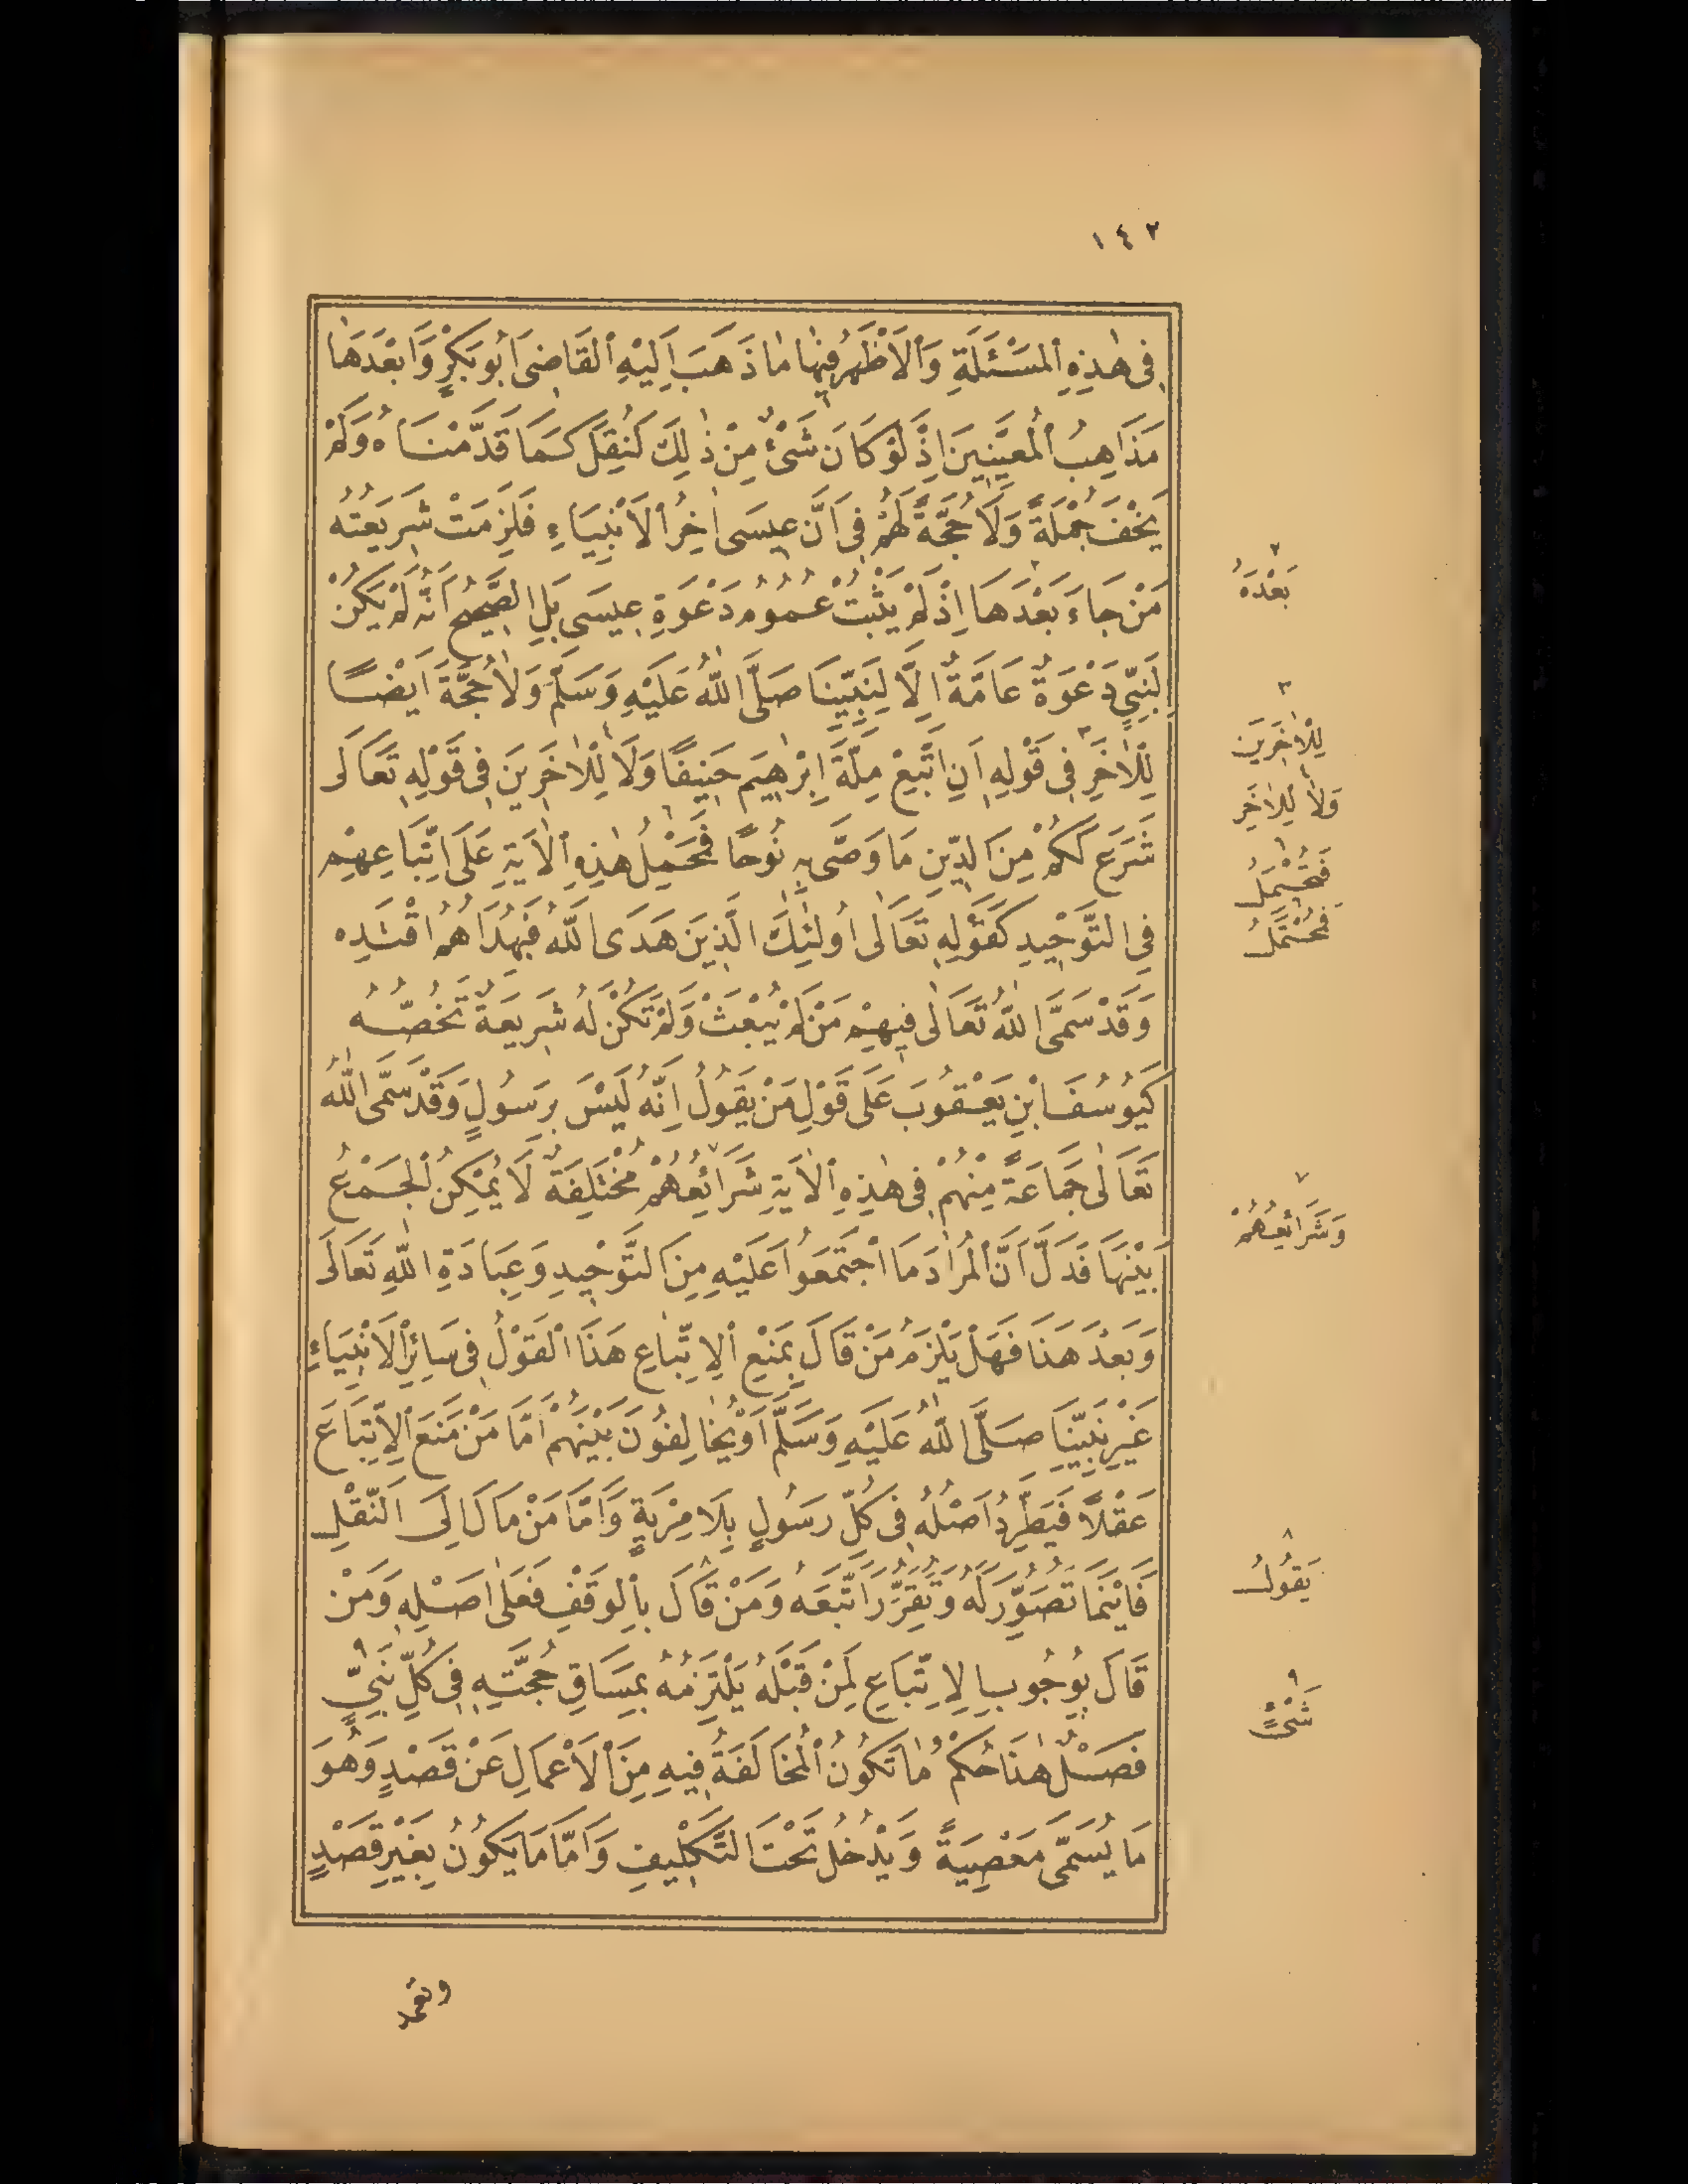 ١٤٢
فِى هٰذِهِ الْمَسْئَلَةِ وَالْاَظْهَرُ فِيهَا مَا ذَهَبَ اِلَيْهِ الْقَاضِى اَبُو بَكْرٍ وَاَبْعَدُهَا
مَذَاهِبُ الْمُعَيِّنِينَ اِذْ لَوْ كَانَ شَىْءٌ مِنْ ذٰلِكَ لَنُقِلَ كَمَا قَدَّمْنَاهُ وَلَمْ
يَخْفَ جُمْلَةً وَلَا حُجَّةَ لَهُمْ فِى اَنَّ عِيسَى اٰخِرُ الْاَنْبِيَاءِ فَلَزِمَتْ شَرِيعَتُهُ
مَنْ جَاءَ بَعْدَهَا اِذْ لَمْ يَثْبُتْ عُمُومُ دَعْوَةِ عِيسَى بَلِ الصَّحِيحُ اَنَّهُ لَمْ يَكُنْ
لِنَبِيٍّ دَعْوَةٌ عَامَّةٌ اِلَّا لِنَبِيِّنَا صَلَّى اللّٰهُ عَلَيْهِ وَسَلَّمَ وَلَا حُجَّةَ اَيْضًا
لِلْاٰخَرِ فِى قَوْلِهِ اَنِ اتَّبِعْ مِلَّةَ اِبْرٰهِيمَ حَنِيفًا وَلَا لِلْاٰخَرِينَ فِى قَوْلِهِ تَعَالَى
شَرَعَ لَكُمْ مِنَ الدِّينِ مَا وَصَّى بِهِ نُوحًا فَحَمْلُ هٰذِهِ الْاٰيَةِ عَلَى اتِّبَاعِهِمْ
فِى التَّوْحِيدِ كَقَوْلِهِ تَعَالَى اُولٰئِكَ الَّذِينَ هَدَى اللّٰهُ فَبِهُدَاهُمُ اقْتَدِهْ
وَقَدْ سَمَّى اللّٰهُ تَعَالَى فِيهِمْ مَنْ لَمْ يُبْعَثْ وَلَمْ تَكُنْ لَهُ شَرِيعَةٌ تَخُصُّهُ
كَيُوسُفَ ابْنِ يَعْقُوبَ عَلَى قَوْلِ مَنْ يَقُولُ اِنَّهُ لَيْسَ بِرَسُولٍ وَقَدْ سَمَّى اللّٰهُ
تَعَالَى جَمَاعَةً مِنْهُمْ فِى هٰذِهِ الْاٰيَةِ شَرَائِعُهُمْ مُخْتَلِفَةٌ لَا يُمْكِنُ الْجَمْعُ
بَيْنَهَا فَدَلَّ اَنَّ الْمُرَادَ مَا اجْتَمَعُوا عَلَيْهِ مِنَ التَّوْحِيدِ وَعِبَادَةِ اللّٰهِ تَعَالَى
وَبَعْدَ هَذَا فَهَلْ يَلْزَمُ مَنْ قَالَ بِمَنْعِ الْاِتِّبَاعِ هَذَا الْقَوْلُ فِى سَائِرِ الْاَنْبِيَاءِ
غَيْرِ نَبِيِّنَا صَلَّى اللّٰهُ عَلَيْهِ وَسَلَّمَ اَوْ يُخَالِفُونَ بَيْنَهُمْ اَمَّا مَنْ مَنَعَ الْاِتِّبَاعَ
عَقْلًا فَيَطَّرِدُ اَصْلُهُ فِى كُلِّ رَسُولٍ بِلَا مِرْيَةٍ وَاَمَّا مَنْ مَالَ اِلَى النَّقْلِ
فَاَيْنَمَا تُصُوِّرَ لَهُ وَتُقُرِّرَ اتَّبَعَهُ وَمَنْ قَالَ بِالْوَقْفِ فَعَلَى اَصْلِهِ وَمَنْ
قَالَ بِوُجُوبِ الْاِتِّبَاعِ لِمَنْ قَبْلَهُ يَلْتَزِمُهُ بِمَسَاقِ حُجَّتِهِ فِى كُلِّ نَبِيٍّ
فَصْلٌ هٰذَا حُكْمُ مَا تَكُونُ الْمُخَالَفَةُ فِيهِ مِنَ الْاَعْمَالِ عَنْ قَصْدٍ وَهُوَ
مَا يُسَمَّى مَعْصِيَةً وَيَدْخُلُ تَحْتَ التَّكْلِيفِ وَاَمَّا مَا يَكُونُ بِغَيْرِ قَصْدٍ
٢
بَعْدَهُ
٣
لِلْاٰخَرِينَ
٤
وَلَا لِلْاٰخَرِ
٦
فَتُحْمَلُ
فَمَحْمَلُ
٧
وَشَرَائِعُهُمْ
٨
يَقُولُ
٩
شَىْءٍ
وتعمد